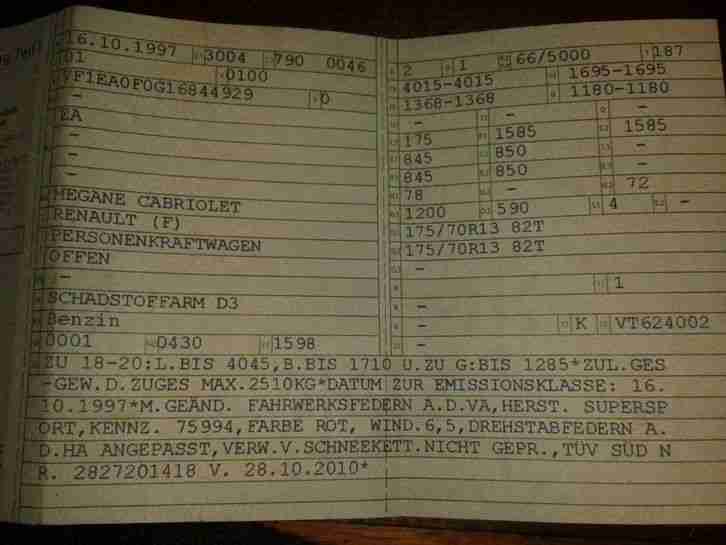 16.10.1997 3004 790 0046
701 0100
VF1EA0F0G16844929 0
-
EA
-
-
-
MEGANE CABRIOLET
RENAULT (F)
PERSONENKRAFTWAGEN
OFFEN
-
SCHADSTOFFARM D3
Benzin
0001 0430 1598
2 1 66/5000 187
4015-4015 1695-1695
1368-1368 1180-1180
- - -
175 1585 1585
845 850 -
845 850 -
78 - 72
1200 590 4 -
175/70R13 82T
175/70R13 82T
-
- 1
-
- K VT624002
-
ZU 18-20:L.BIS 4045,B.BIS 1710 U.ZU G:BIS 1285*ZUL.GES
-GEW.D.ZUGES MAX.2510KG*DATUM ZUR EMISSIONSKLASSE: 16.
10.1997*M.GEÄND. FAHRWERKSFEDERN A.D.VA,HERST. SUPERSP
ORT,KENNZ. 75994,FARBE ROT, WIND.6,5,DREHSTABFEDERN A.
D.HA ANGEPASST,VERW.V.SCHNEEKETT.NICHT GEPR.,TÜV SÜD N
R. 2827201418 V. 28.10.2010*